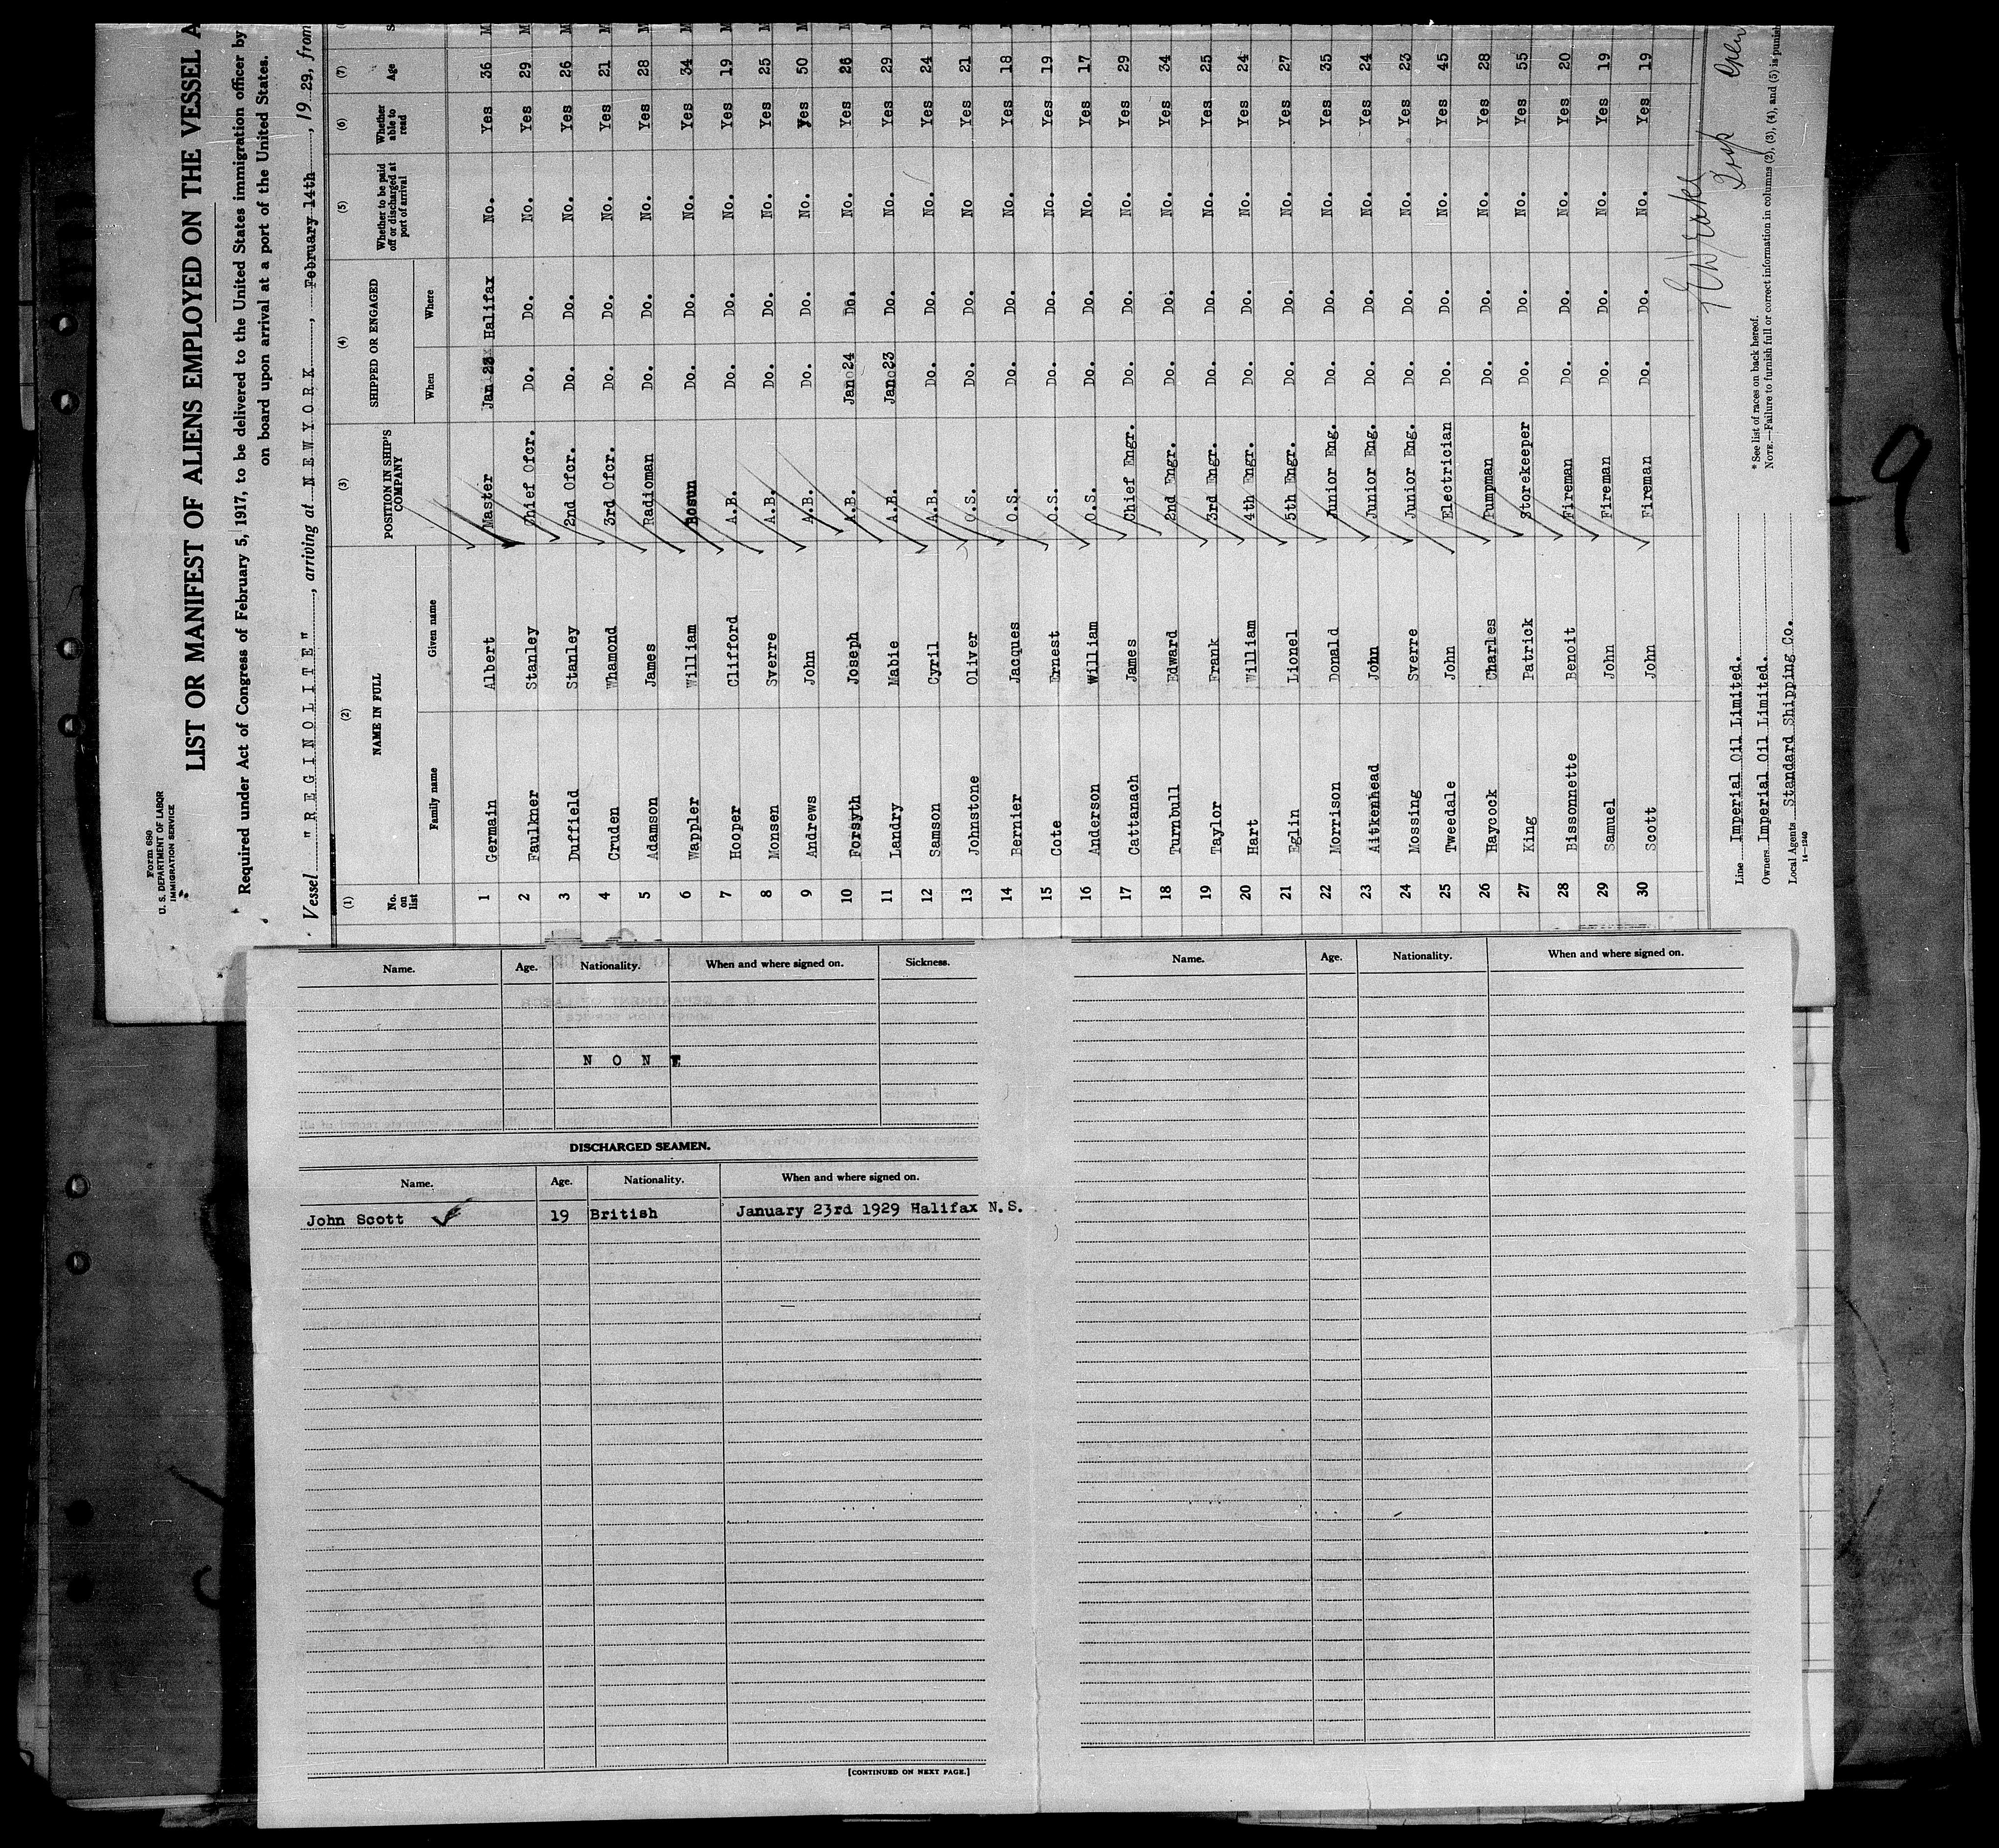 Form 680
U. S. DEPARTMENT OF LABOR
IMMIGRATION SERVICE
LIST OR MANIFEST OF ALIENS EMPLOYED ON THE VESSEL A
Required under Act of Congress of February 5, 1917, to be delivered to the United States immigration officer by
on board upon arrival at a port of the United States.
Vessel "REGINOLITE", arriving at NEW YORK, February 14th, 1929, from
(1) (2) (3) (4) (5) (6) (7)
No. on list NAME IN FULL POSITION IN SHIP'S COMPANY SHIPPED OR ENGAGED Whether to be paid off or discharged at port of arrival Whether able to read Age S
Family name Given name When Where
1 Germain Albert Master Jan 23 Halifax No. Yes 36 M
2 Faulkner Stanley Chief Ofcr. Do. Do. No. Yes 29 M
3 Duffield Stanley 2nd Ofcr. Do. Do. No. Yes 26 M
4 Cruden Whamond 3rd Ofcr. Do. Do. No. Yes 21 M
5 Adamson James Radioman Do. Do. No. Yes 28 M
6 Wappler William Bosun Do. Do. No. Yes 34 M
7 Hooper Clifford A.B. Do. Do. No. Yes 19 M
8 Monsen Sverre A.B. Do. Do. No. Yes 25 M
9 Andrews John A.B. Do. Do. No. Yes 50 M
10 Forsyth Joseph A.B. Jan 24 Do. No. Yes 26 M
11 Landry Mabie A.B. Jan 23 Do. No. Yes 29 M
12 Samson Cyril A.B. Do. Do. No. Yes 24 M
13 Johnstone Oliver O.S. Do. Do. No Yes 21
14 Bernier Jacques O.S. Do. Do. No. Yes 18
15 Cote Ernest O.S. Do. Do. No. Yes 19
16 Anderson William O.S. Do. Do. No. Yes 17
17 Cattanach James Chief Engr. Do. Do. No. Yes 29
18 Turnbull Edward 2nd Engr. Do. Do. No. Yes 34
19 Taylor Frank 3rd Engr. Do. Do. No. Yes 25
20 Hart William 4th Engr. Do. Do. No. Yes 24
21 Eglin Lionel 5th Engr. Do. Do. No. Yes 27
22 Morrison Donald Junior Eng. Do. Do. No. Yes 35
23 Aitkenhead John Junior Eng. Do. Do. No. Yes 24
24 Mossing Sverre Junior Eng. Do. Do. No. Yes 23
25 Tweedale John Electrician Do. Do. No. Yes 45
26 Haycock Charles Pumpman Do. Do. No. Yes 28
27 King Patrick Storekeeper Do. Do. No. Yes 55
28 Bissonnette Benoit Fireman Do. Do. No. Yes 20
29 Samuel John Fireman Do. Do. No. Yes 19
30 Scott John Fireman Do. Do. No. Yes 19
Line Imperial Oil Limited.
Owners Imperial Oil Limited.
Local Agents Standard Shipping Co.
14-1240
* See list of races on back hereof.
NOTE.—Failure to furnish full or correct information in columns (2), (3), (4), and (5) is punish
9
Name. Age. Nationality. When and where signed on. Sickness.
NONE
DISCHARGED SEAMEN.
Name. Age. Nationality. When and where signed on.
John Scott 19 British January 23rd 1929 Halifax N.S.
[CONTINUED ON NEXT PAGE.]
Name. Age. Nationality. When and where signed on.